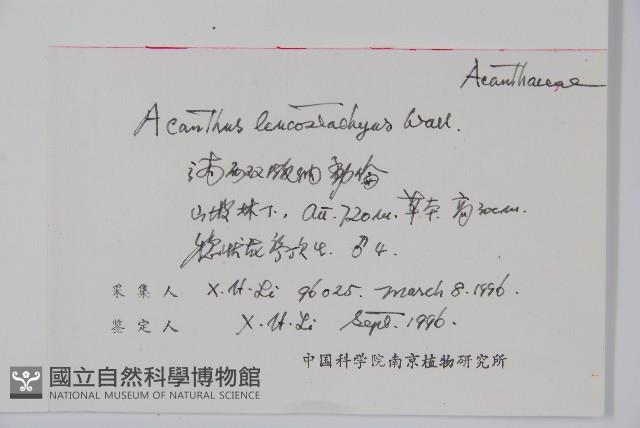 Acanthaceae
Acanthus leucostachyus Wall.
滇西双版纳勐仑
山坡林下, alt. 720m. 草本, 高30cm.
采集人 X.H.Li 96025. March 8. 1996.
鉴定人 X.H.Li Sept. 1996.
中国科学院南京植物研究所
國立自然科學博物館
NATIONAL MUSEUM OF NATURAL SCIENCE